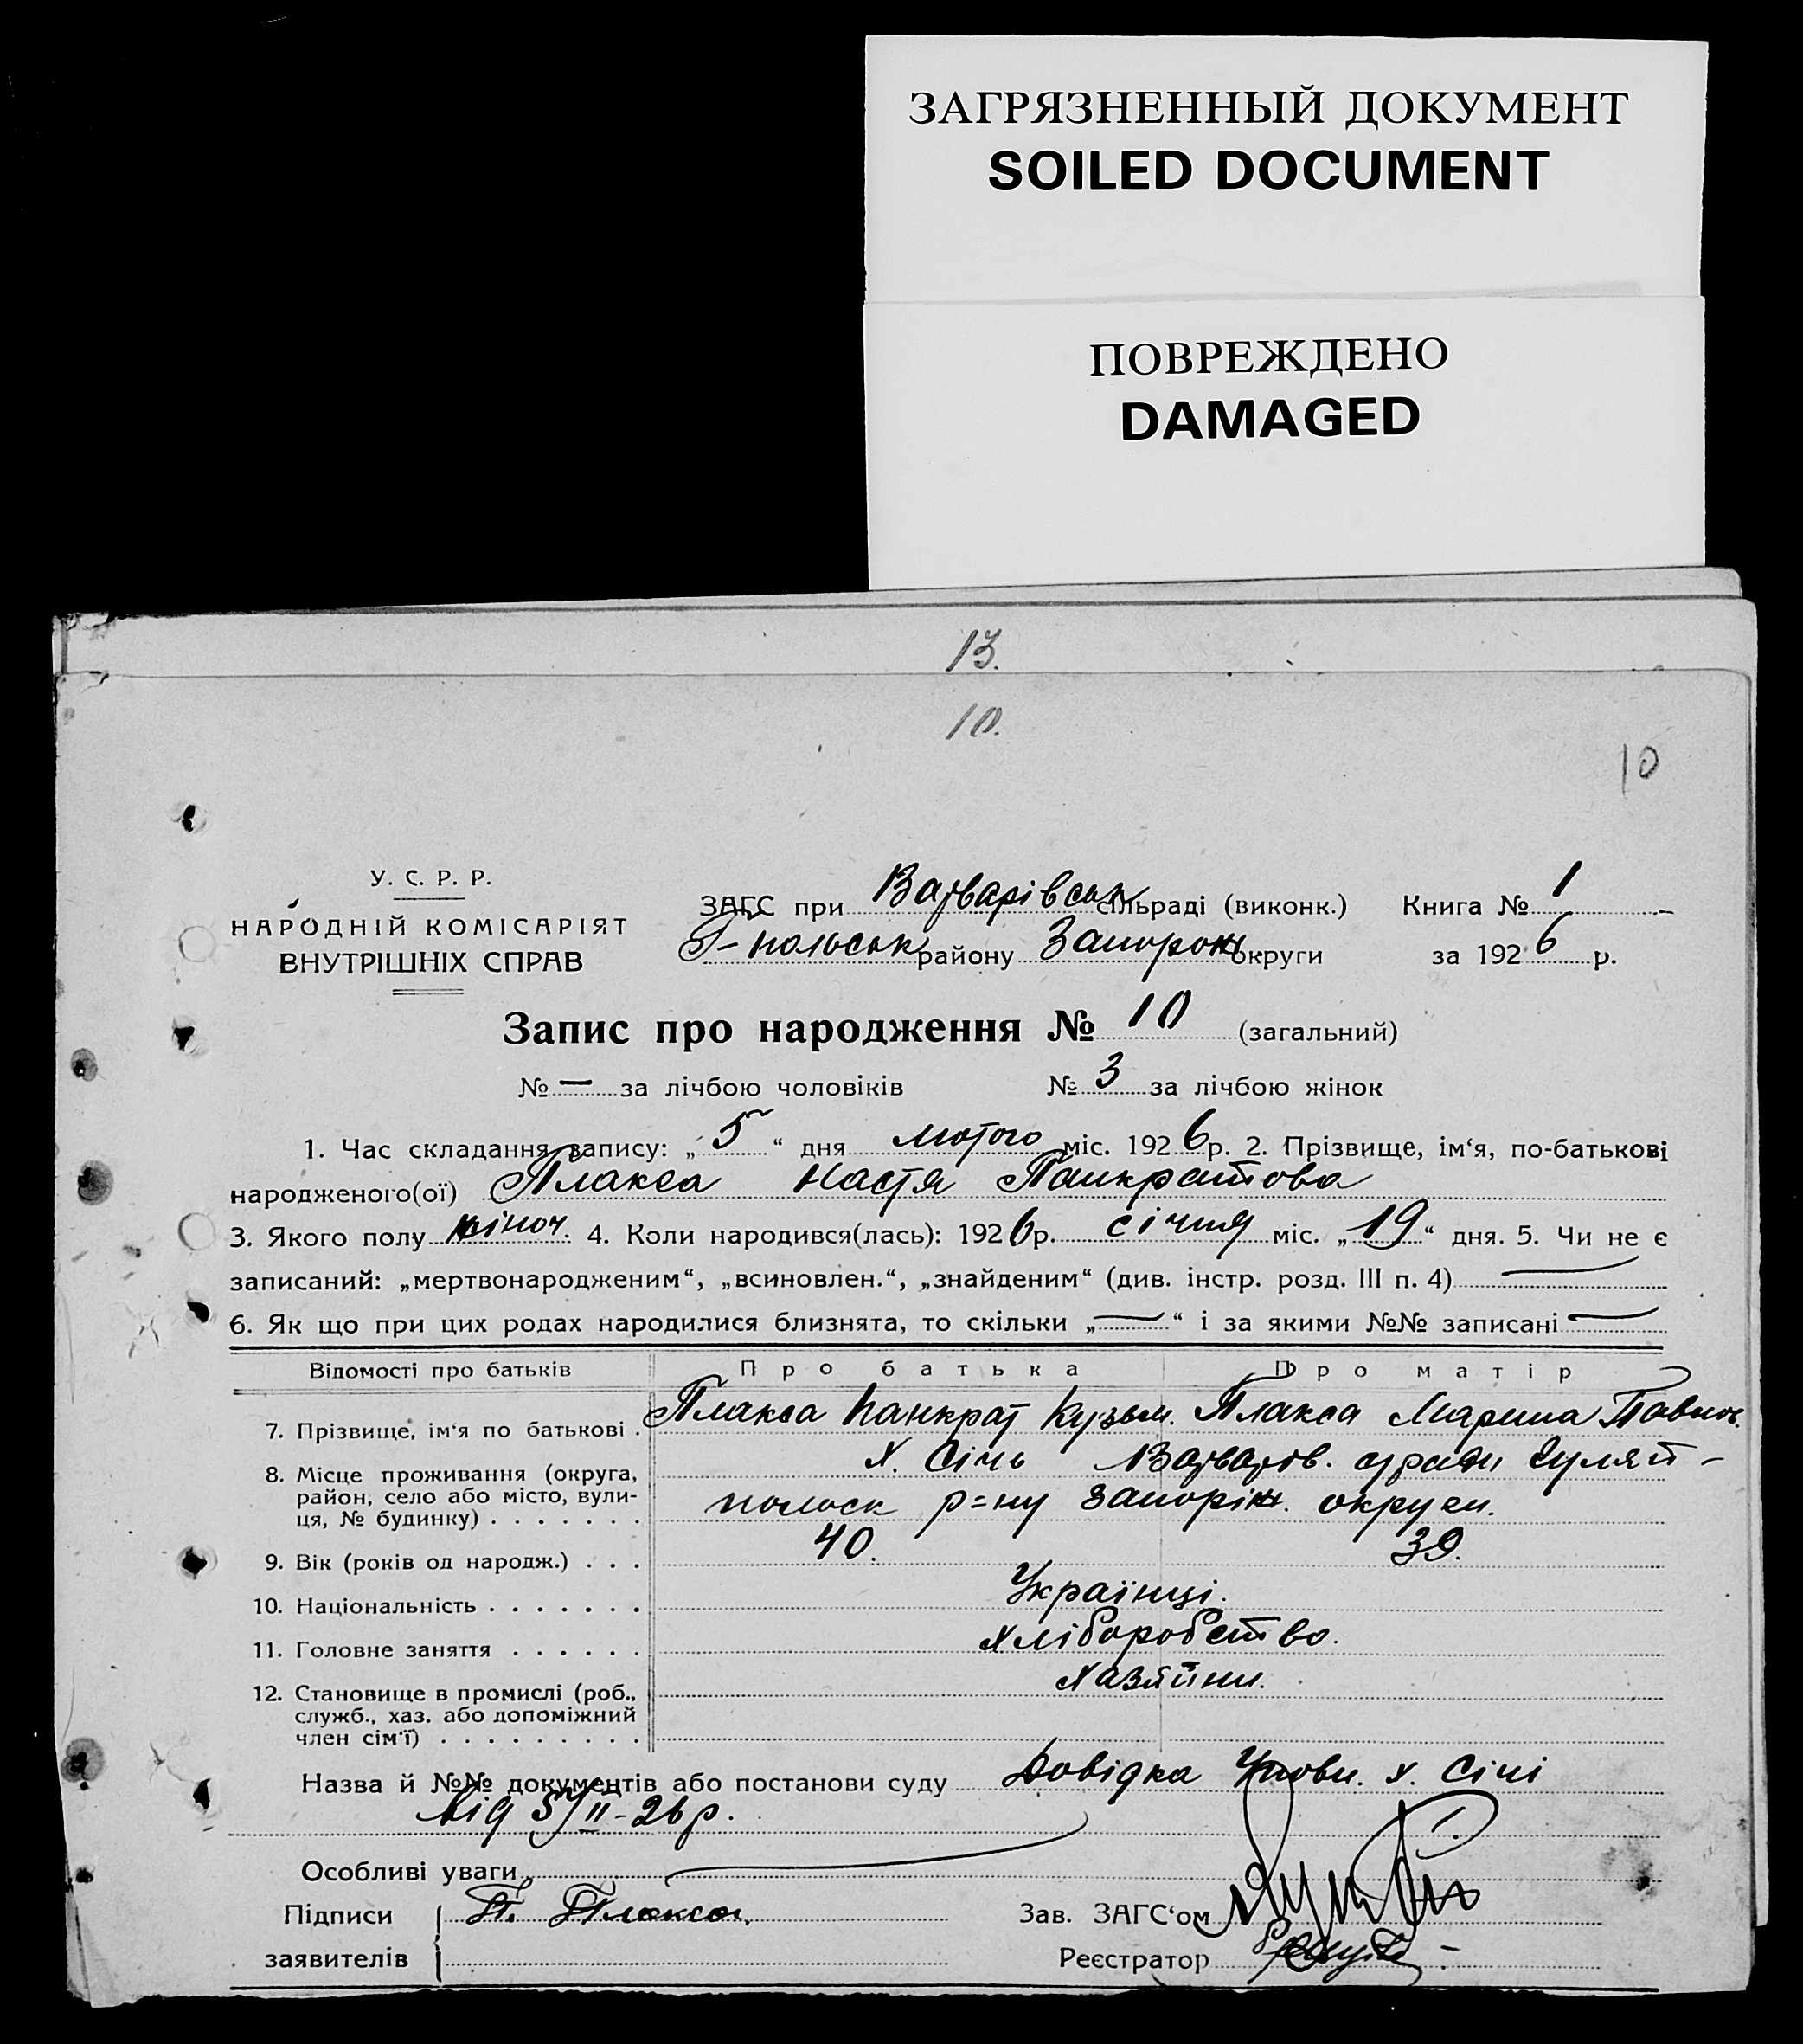 ЗАГРЯЗНЕННЫЙ ДОКУМЕНТ
SOILED DOCUMENT
ПОВРЕЖДЕНО
DAMAGED
13.
10.
10
У. С. Р. Р.
НАРОДНІЙ КОМІСАРІЯТ
ВНУТРІШНІХ СПРАВ
ЗАГС при Варварівськ сільраді (виконк.) Книга № 1
Г-польськ району Запорож округи за 1926 р.
Запис про народження № 10 (загальний)
№ — за лічбою чоловіків № 3 за лічбою жінок
1. Час складання запису: „5“ дня лютого міс. 1926 р. 2. Прізвище, ім‘я, по-батькові
народженого(ої) Плакса Настя Панкратова
3. Якого полу жіноч. 4. Коли народився(лась): 1926 р. січня міс. „19“ дня. 5. Чи не є
записаний: „мертвонародженим“, „всиновлен.“, „знайденим“ (див. інстр. розд. III п. 4) —
6. Як що при цих родах народилися близнята, то скільки „—“ і за якими №№ записані —
Відомості про батьків Про батька Про матір
7. Прізвище, ім‘я по батькові . Плакса Панкрат Кузьм. Плакса Марина Павлов.
8. Місце проживання (округа, район, село або місто, вулиця, № будинку) . . . . . . . х. Січь Варварів. с/ради Гуляй-
полськ р=ну Запоріж. округи.
9. Вік (років од народж.) . . . 40. 39.
10. Національність . . . . . . . Українці.
11. Головне заняття . . . . . . Хліборобство.
12. Становище в промислі (роб., служб., хаз. або допоміжний член сім‘ї) . . . . . . . . . Хазяйни.
Назва й №№ документів або постанови суду Довідка Уповн. х. Січі
від 5/II-26 р.
Особливі уваги
Підписи заявителів П. Плакса.
Зав. ЗАГС‘ом
Реєстратор